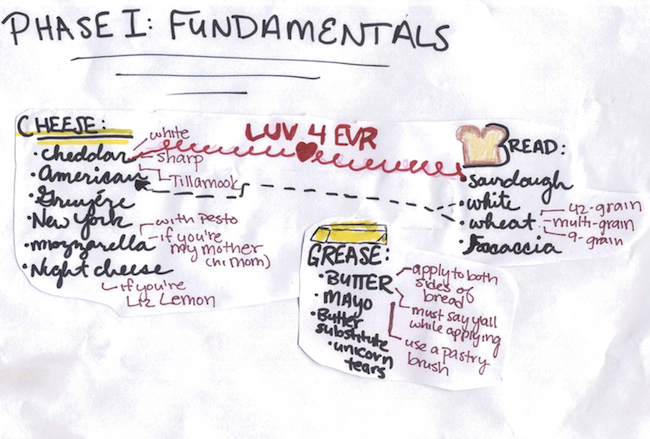 PHASE I: FUNDAMENTALS
CHEESE:
• cheddar
white
sharp
Tillamook
• American
• Gruyére
• New York
• mozzarella
with pesto
if you're
my mother
(hi mom)
• Night cheese
if you're
Liz Lemon
LUV 4 EVR
BREAD:
• sourdough
• white
• wheat
42-grain
multi-grain
9-grain
• focaccia
GREASE:
• BUTTER
apply to both
sides of
bread
must say y'all
while applying
use a pastry
brush
• MAYO
• Butter
substitute
• unicorn
tears